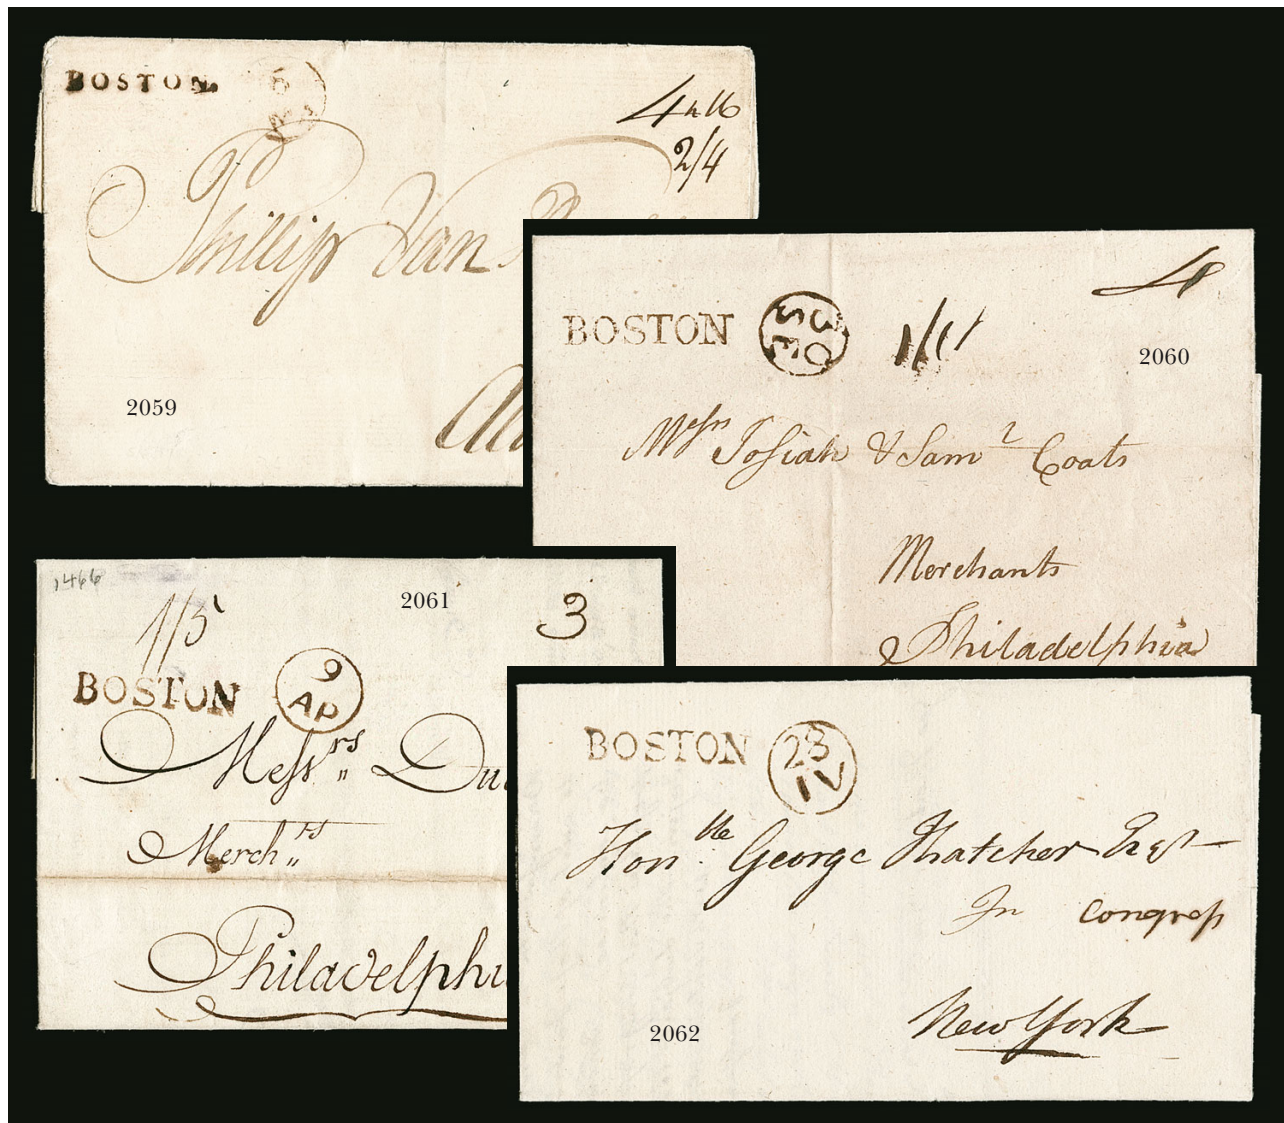 BOSTON.
6
4 dw
2/4
Phillip Van
2059
BOSTON
30
SE
1/11
4
2060
Messrs Josiah & Saml Coats
Merchants
Philadelphia
1466
2061
1/5
3
BOSTON
9
AP
Messrs Du
Merchts
Philadelphi
BOSTON
28
IV
Honble George Thatcher Esqr
In Congress
New York
2062